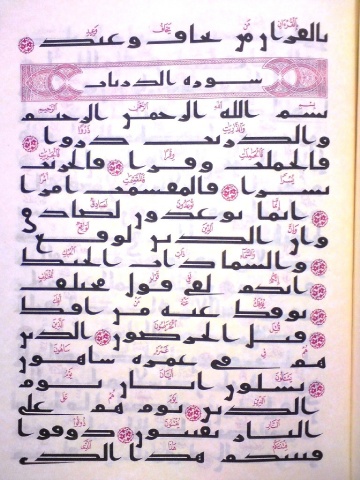 بالقران من يخاف وعيد
سورة الذريات
بسم الله الرحمن الرحيم
والذريت ذروا
فالحملت وقرا فالجريت
يسرا فالمقسمت امرا
انما توعدون لصادق
وان الدين لوقع
والسماء ذات الحبك
انكم لفي قول مختلف
يوفك عنه من افك
قتل الخرصون الذين
هم في غمرة ساهون
يسلون ايان يوم
الدين يوم هم على
النار يفتنون ذوقوا
فتنتكم هذا الذي